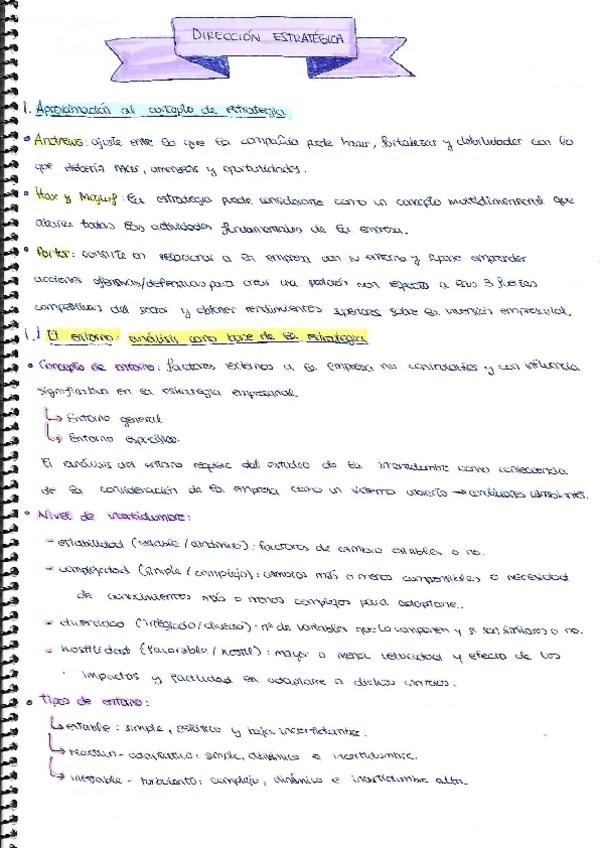 DIRECCIÓN ESTRATÉGICA
1. Aproximación al concepto de estrategia
• Andrews: ajuste entre lo que la compañía puede hacer, fortalezas y debilidades con lo
que debería hacer, amenazas y oportunidades.
• Hax y Majluf: la estrategia puede considerarse como un concepto multidimensional que
abarca todas las actividades fundamentales de la empresa.
• Porter: consiste en relacionar a la empresa con su entorno y supone emprender
acciones ofensivas/defensivas para crear una posición con respecto a las 5 fuerzas
competitivas del sector y obtener rendimientos superiores sobre la inversión empresarial.
1.1 El entorno: análisis como base de la estrategia
• Concepto de entorno: factores externos a la empresa no controlables y con influencia
significativa en la estrategia empresarial.
↳ Entorno general
↳ Entorno específico.
El análisis del entorno requiere del estudio de la incertidumbre como consecuencia
de la consideración de la empresa como un sistema abierto →
• Nivel de incertidumbre:
- estabilidad (estable/dinámico): factores de cambio estables o no.
- complejidad (simple/complejo): cambios más o menos comprensibles o necesidad
de conocimientos más o menos complejos para adaptarse.
- diversidad (integrado/diverso): nº de variables que lo componen y si son similares o no.
- hostilidad (favorable/hostil): mayor o menor velocidad y efecto de los
impactos y facilidad en adaptarse a dichos cambios.
• Tipos de entorno:
↳ estable: simple, estático y baja incertidumbre.
↳ reactivo-adaptativo: simple, dinámico e incertidumbre.
↳ inestable - turbulento: complejo, dinámico e incertidumbre alta.